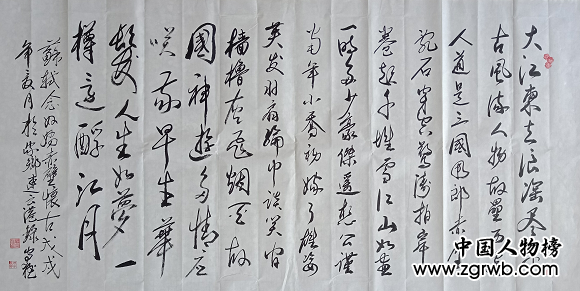 大江東去浪淘盡千
古風流人物故壘西邊
人道是三國周郎赤壁
亂石穿空驚濤拍岸
卷起千堆雪江山如畫
一時多少豪傑遙想公瑾
當年小喬初嫁了雄姿
英发羽扇綸巾談笑間
檣櫓灰飛烟灭故
國神遊多情應
笑我早生華
髮人生如夢一
樽還酹江月
蘇軾念奴嬌赤壁懷古戊戌
年夏月於
中国人物榜
www.zgrwb.com